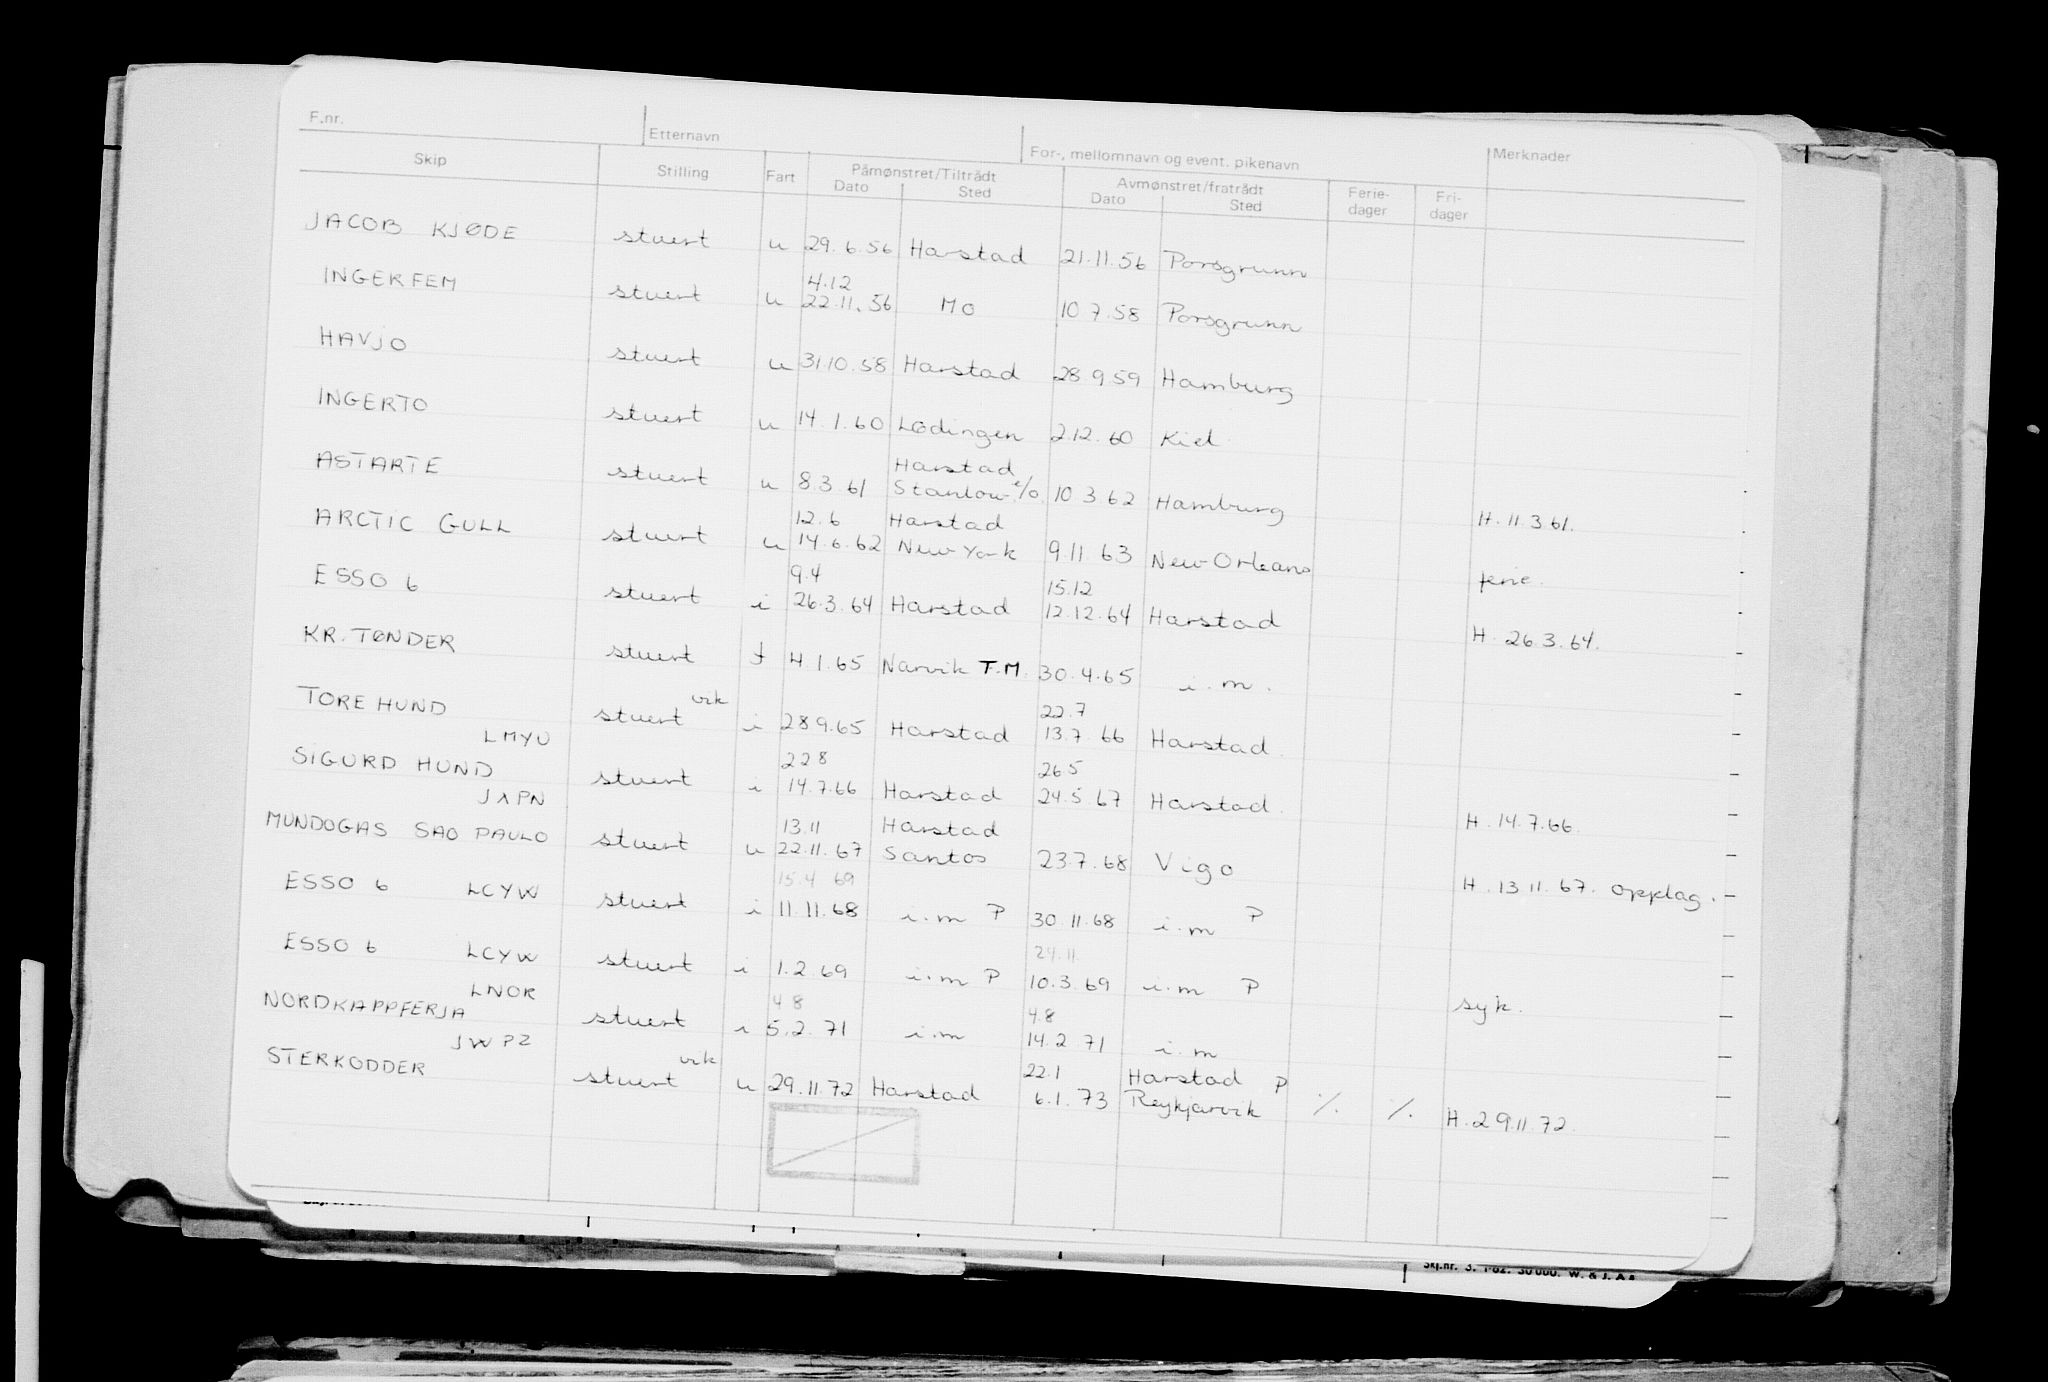 F.nr. Etternavn For-, mellomnavn og event. pikenavn Merknader
Skip Stilling Fart Påmønstret/Tiltrådt Avmønstret/fratrådt Ferie- Fri-
Dato Sted Dato Sted dager dager
JACOB KJØDE stuert u 29.6.56 Harstad 21.11.56 Porsgrunn
4.12
INGERFEM stuert u 22.11.56 Mo 10.7.58 Porsgrunn
HAVJO stuert u 31.10.58 Harstad 28.9.59 Hamburg
INGERTO stuert u 14.1.60 Lødingen 2.12.60 Kiel
Harstad
ASTARTE stuert u 8.3.61 Stanlow e/o 10.3.62 Hamburg H. 11.3.61.
12.6 Harstad
ARCTIC GULL stuert u 14.6.62 New York 9.11.63 New Orleans ferie.
9.4 15.12
ESSO 6 stuert i 26.3.64 Harstad 12.12.64 Harstad H. 26.3.64.
KR. TØNDER stuert t 4.1.65 Narvik T.M. 30.4.65 i.m.
vik 22.7
TORE HUND stuert i 28.9.65 Harstad 13.7.66 Harstad.
LMYU 22.8 26.5
SIGURD HUND stuert i 14.7.66 Harstad 24.5.67 Harstad. H. 14.7.66.
JXPN 13.11 Harstad
MUNDOGAS SAO PAULO stuert u 22.11.67 Santos 23.7.68 Vigo H. 13.11.67. opplag.
15.4 69
ESSO 6 LCYW stuert i 11.11.68 i.m P 30.11.68 i.m P
24.11
ESSO 6 LCYW stuert i 1.2.69 i.m P 10.3.69 i.m P syk.
LNOR 4.8 4.8
NORDKAPPFERJA stuert i 5.2.71 i.m 14.2.71 i.m
JWPZ vik 22.1 Harstad P
STERKODDER stuert u 29.11.72 Harstad 6.1.73 Reykjarvik ./. ./. H. 29.11.72.
Skj.nr. 3. 1-62. 30 000. W. & J. A